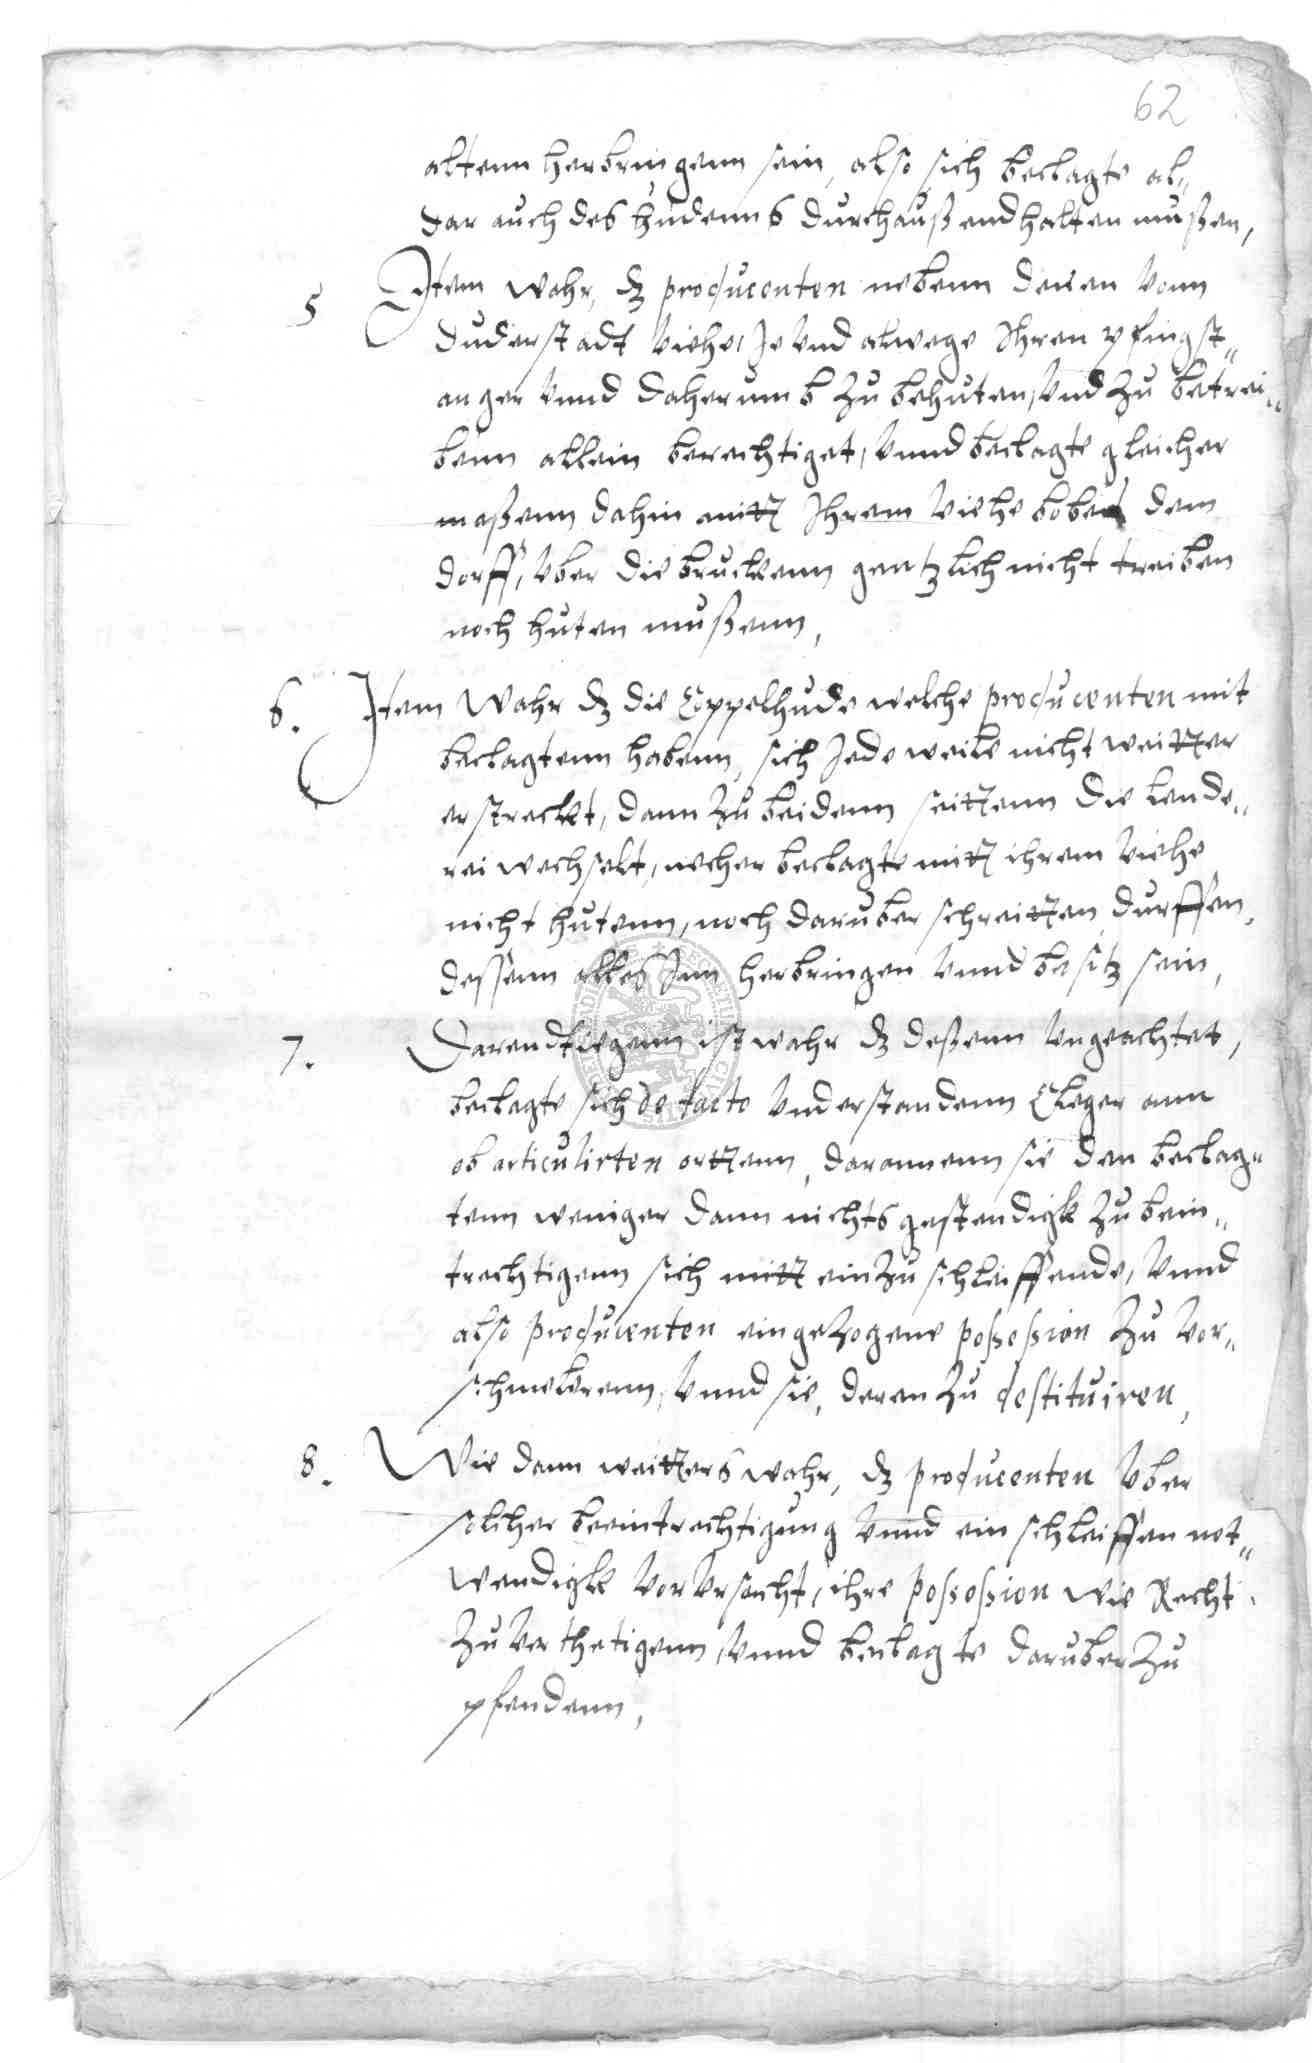 62
altenn herbringenn sein, also sich beclagte al„
dar auch des hudenns durchauß endhalten mußen,
5 Item wahr, dz producenten nebenn denen vonn
Duderstadt viehe, Je vnd alwege Ihren pfingst„
anger vnnd daherumb zu behuten, vnd zu betrei„
benn allein berechtiget, vnnd beclagte gleicher
maßenn dahin mitt Ihrem viehe boben dem
dorff, vber die bruckenn gentzlich nicht treiben
noch huten mußenn,
6. Item wahr dz die Coppelhude welche producenten mit
beclagtenn habenn, sich Jede weile nicht weitter
erstreckt, dann zu beidenn seittenn die lende„
rei wechselt, necher beclagte mitt ihrem viehe
nicht hutenn, noch daruber schreitten durffen,
dessenn alles Inn herbringen vnnd besitz sein,
7. Darendkiegenn ist wahr dz deßenn vngeachtet,
beclagte sich de facto vnderstandenn Cleger ann
ob articulirten ortenn, darannenn sie den beclag„
tenn weniger dann nichts gestendigk zu bein„
trechtigenn sich mitt einzuschleiffende, vnnd
also producenten eingezogene possession zu vor„
schmelerenn, vnnd sie, deren zu destituiren,
8. Wie dann weitters wahr, dz producenten vber
solcher beeintrechtigung vnnd einschleiffen not„
wendigk vorvrsacht, ihre possession wie Recht
zu verthetigenn, vnnd beclagte daruber zu
pfendenn,